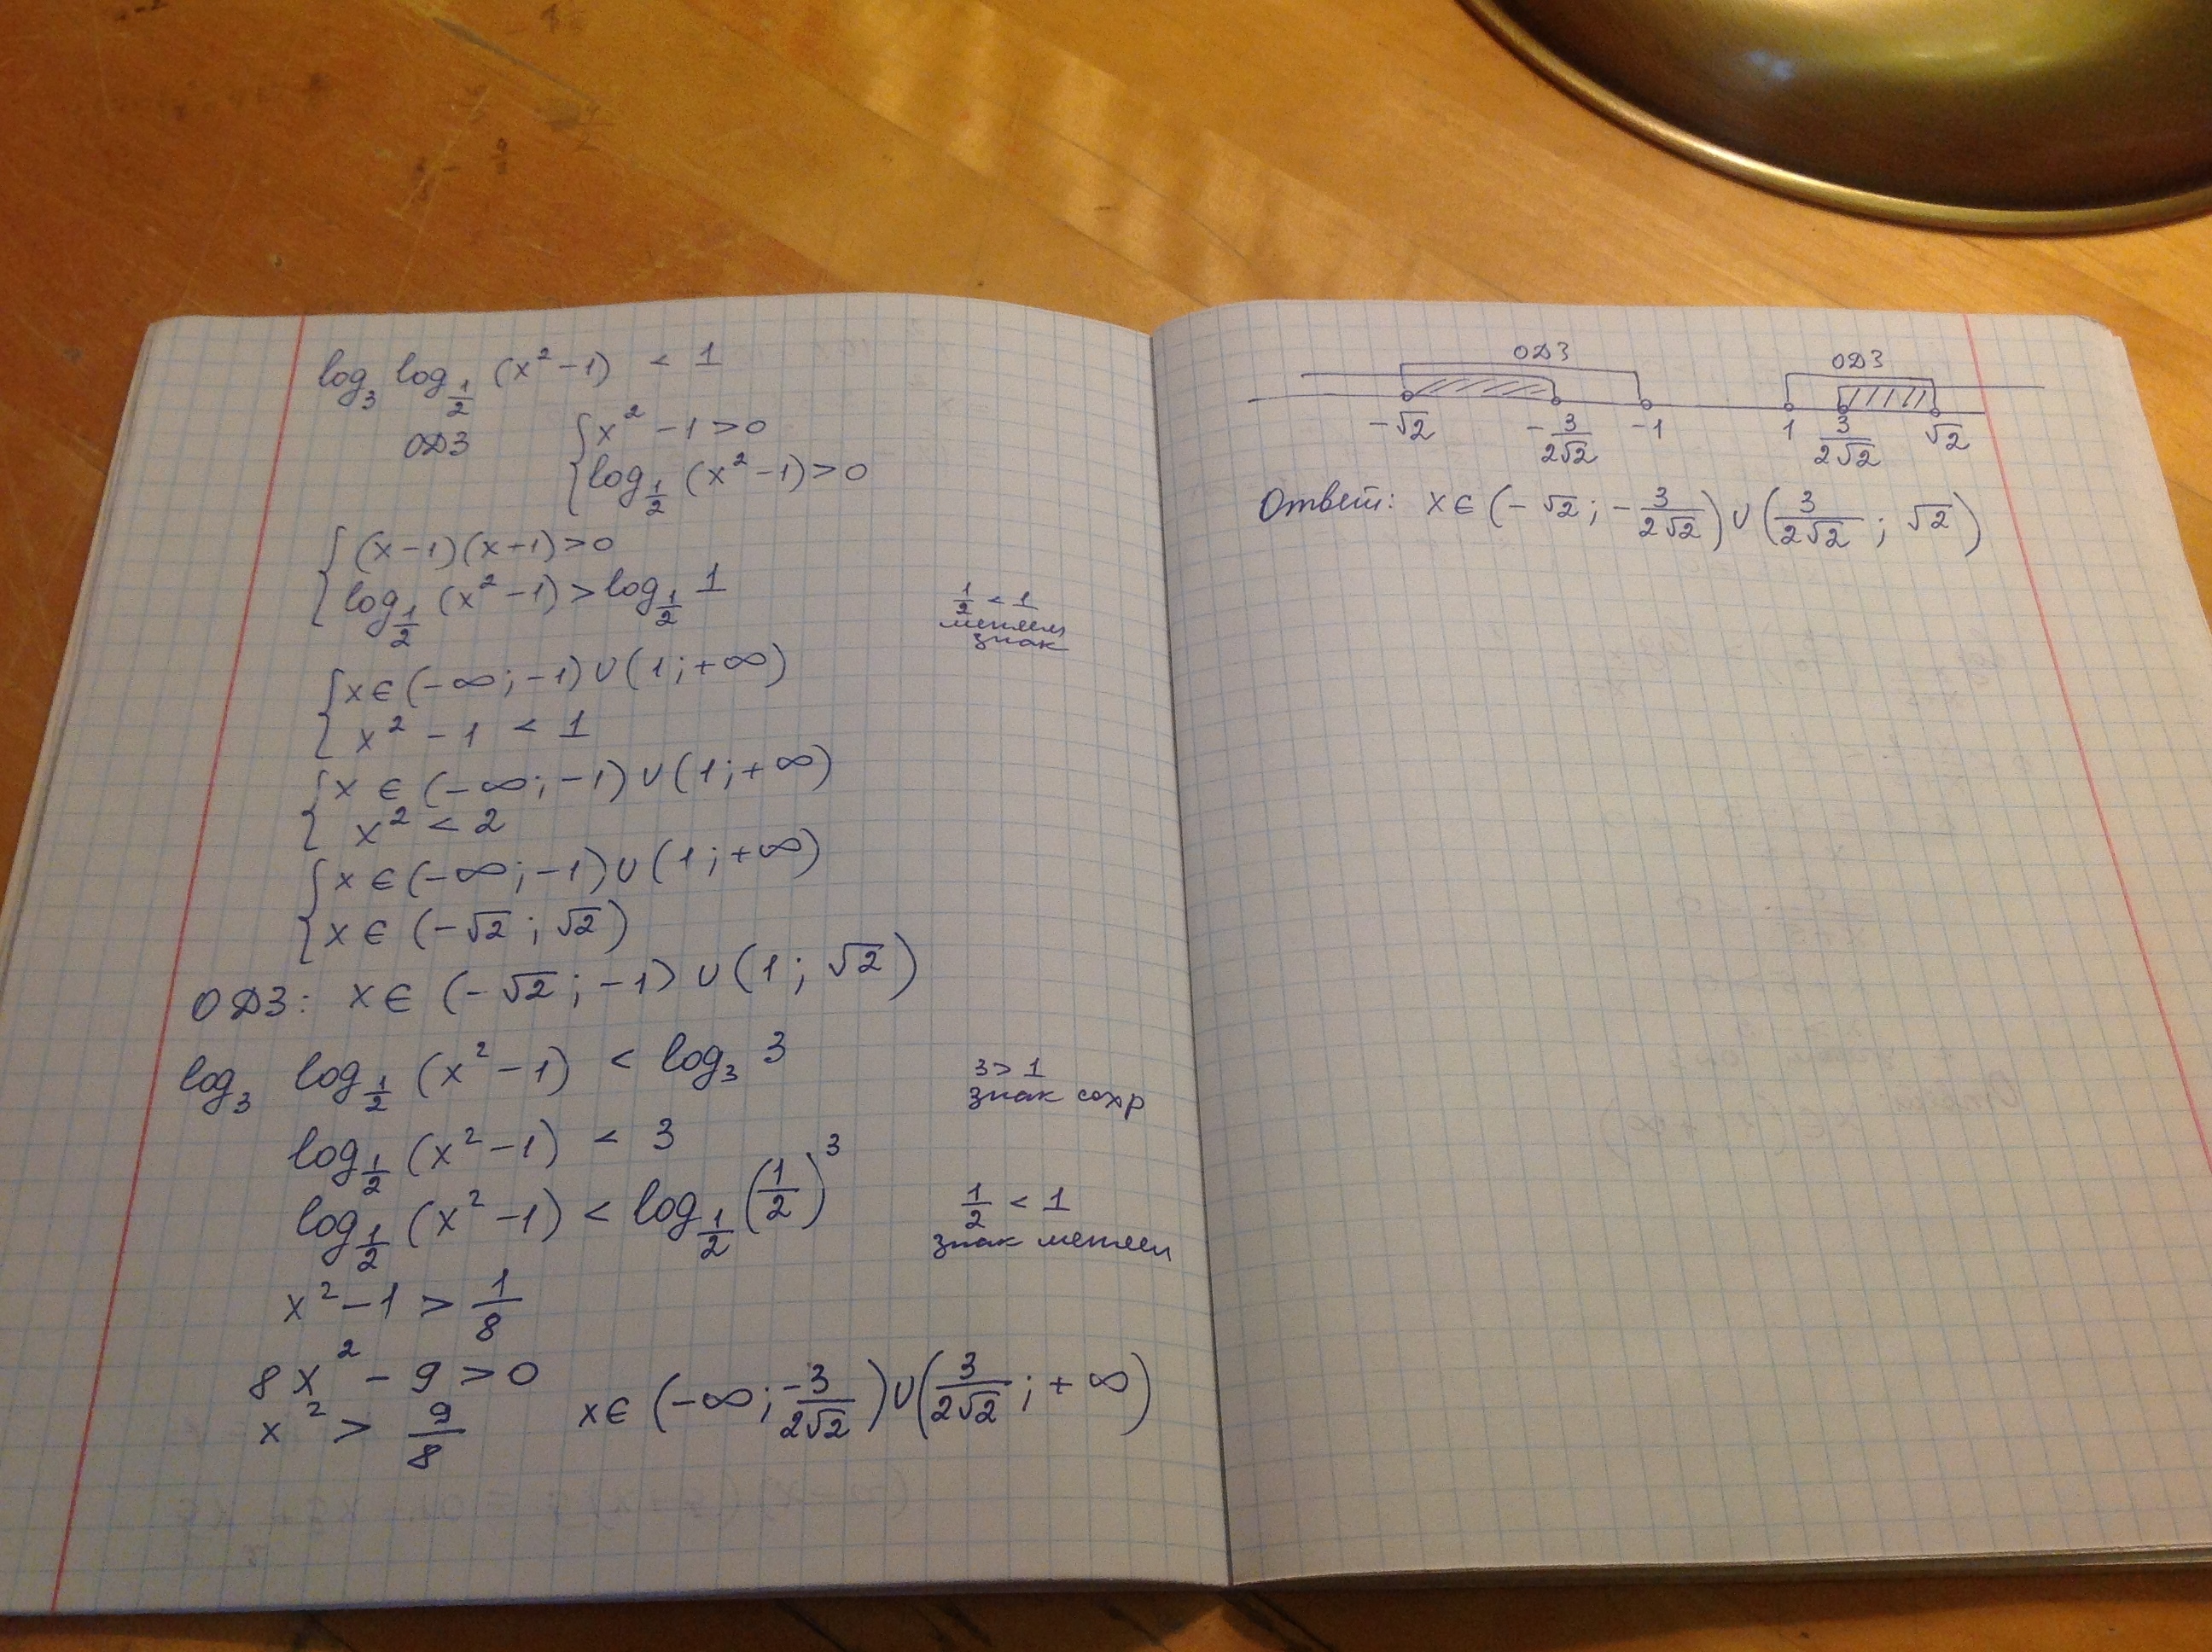 log₃ log_{1/2} (x² - 1) < 1
ОДЗ { x² - 1 > 0
{ log_{1/2} (x² - 1) > 0
{ (x - 1)(x + 1) > 0
{ log_{1/2} (x² - 1) > log_{1/2} 1
1/2 < 1
меняем
знак
{ x ∈ (-∞; -1) ∪ (1; +∞)
{ x² - 1 < 1
{ x ∈ (-∞; -1) ∪ (1; +∞)
{ x² < 2
{ x ∈ (-∞; -1) ∪ (1; +∞)
{ x ∈ (-√2; √2)
ОДЗ: x ∈ (-√2; -1) ∪ (1; √2)
log₃ log_{1/2} (x² - 1) < log₃ 3
3 > 1
знак сохр
log_{1/2} (x² - 1) < 3
log_{1/2} (x² - 1) < log_{1/2} (1/2)³
1/2 < 1
знак меняем
x² - 1 > 1/8
8x² - 9 > 0
x² > 9/8 x ∈ (-∞; -3/(2√2)) ∪ (3/(2√2); +∞)
ОДЗ ОДЗ
-√2 -3/(2√2) -1 1 3/(2√2) √2
Ответ: x ∈ (-√2; -3/(2√2)) ∪ (3/(2√2); √2)